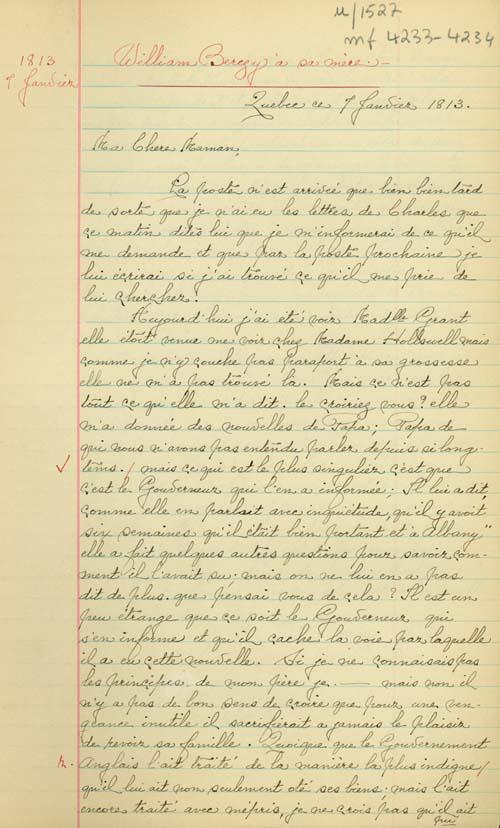 u/1527
mf 4233-4234
1813
7 Janvier
William Berczy à sa mère.-
Quebec ce 7 Janvier 1813.
Ma Chere Maman,
La poste n'est arrivée que bien bien tard
de sorte que je n'ai eu les lettres de Charles que
ce matin dites lui que je m'informerai de ce qu'il
me demande et que par la poste prochaine je
lui écrirai si j'ai trouvé ce qu'il me prie de
lui chercher.
Aujourd'hui j'ai été voir Madlle Grant
elle était venue me voir chez Madame Hollswell mais
comme je n'y couche pas paraport à sa grossesse
elle ne m'a pas trouvé là. Mais ce n'est pas
tout ce qu'elle m'a dit. le croiriez vous? elle
m'a donnée des nouvelles de Papa; Papa de
qui nous n'avons pas entendu parler depuis si long-
têms./ mais ce qui est le plus singulier c'est que
c'est le Gouverneur qui l'en a informée; Il lui a dit,
comme elle en parlait avec inquiétude, qu'il y avoit
six semaines qu'il était bien portant et à Albany"
elle a fait quelques autres questions pour savoir com-
ment il l'avait su; mais on ne lui en a pas
dit de plus. que pensai vous de cela? Il est un
peu étrange que ce soit le Gouverneur qui
s'en informe et qu'il cache la voie par laquelle
il a eu cette nouvelle. Si je ne connaisais pas
les principes de mon père je — mais non il
n'y a pas de bon sens de croire que pour une ven-
geance inutile il sacrifierait a jamais le plaisir
de revoir sa famille. Quoique que le Gouvernement
Anglais l'ait traité de la manière la plus indigne/
qu'il lui ait non seulement oté ses biens, mais l'ait
encore traité avec mépris, je ne crois pas qu'il ait